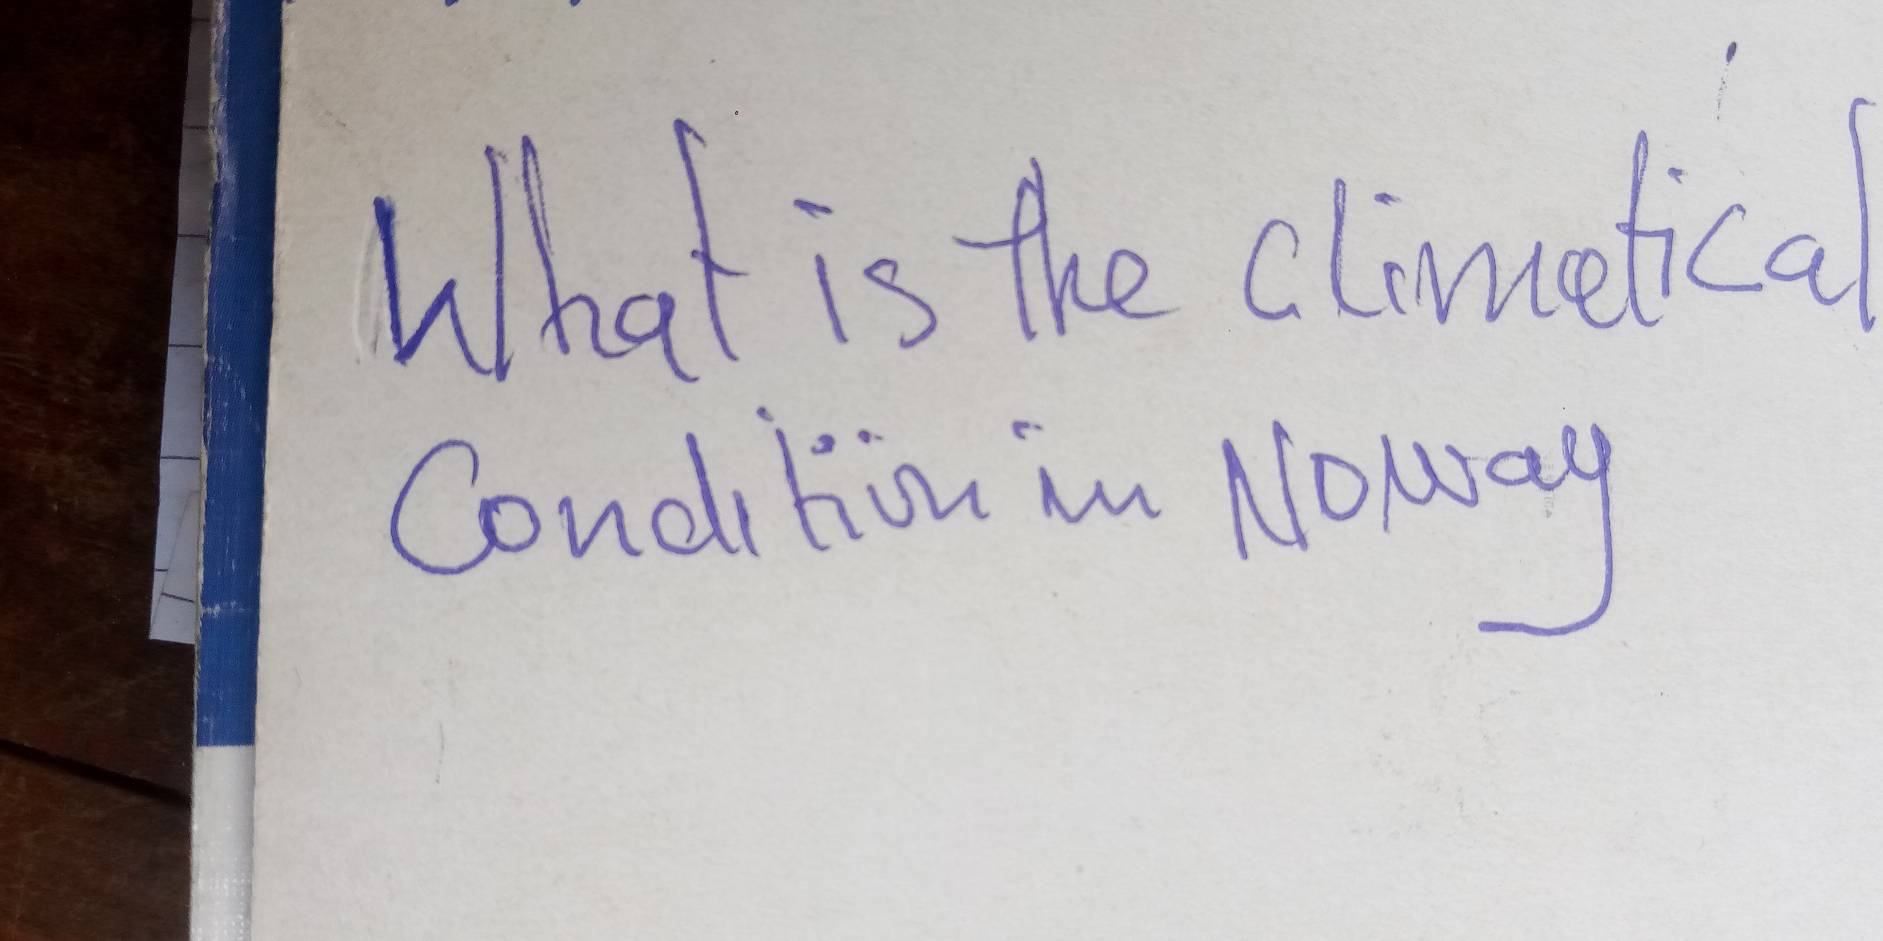 What is the climatical
Condition in Norway